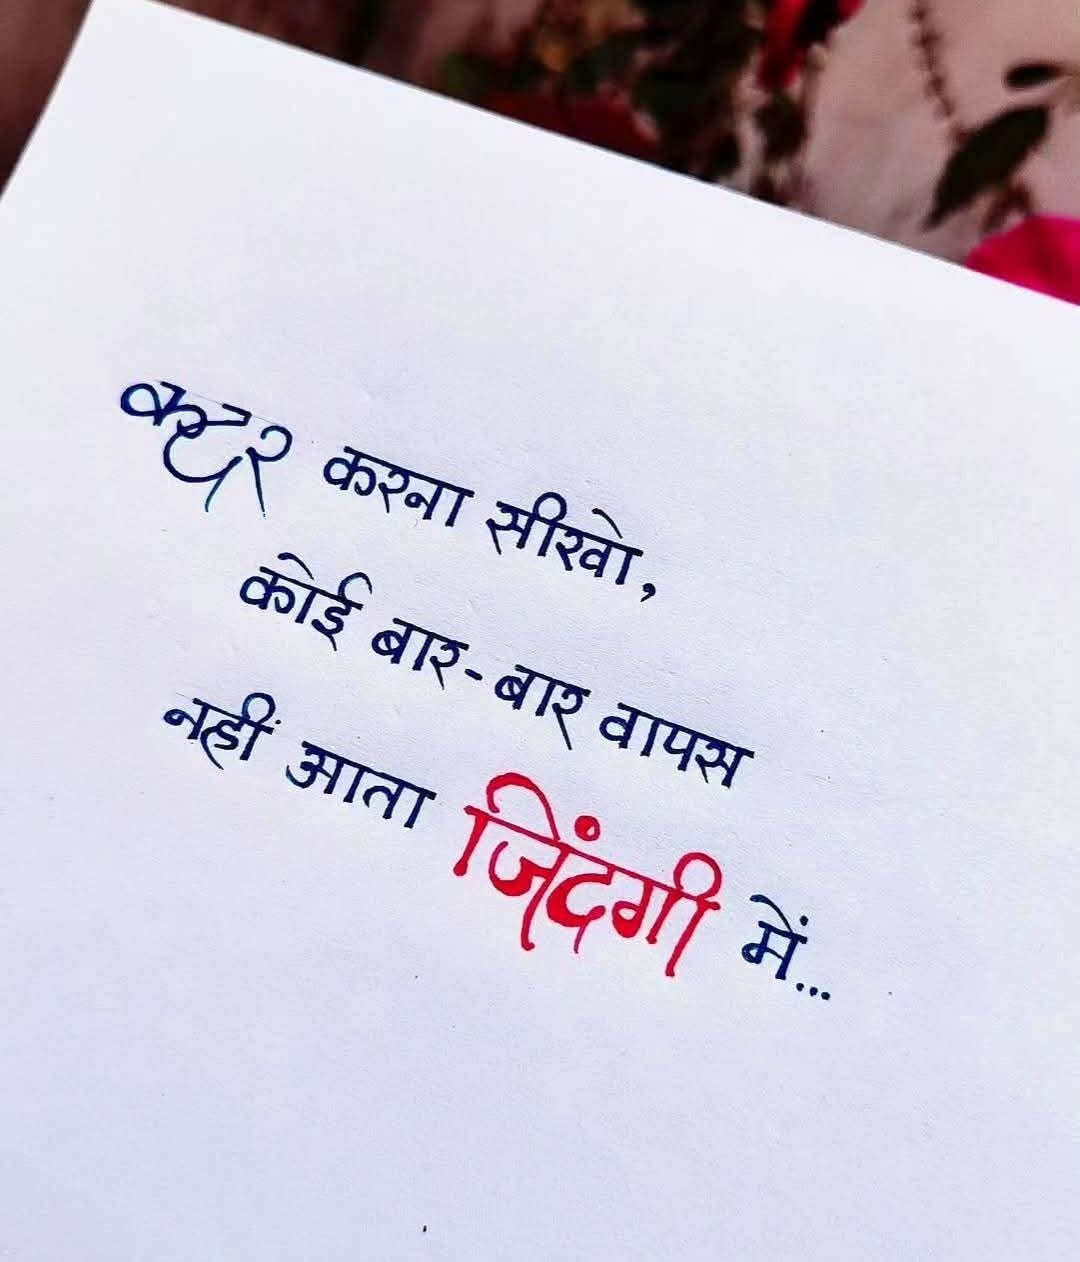 कदर करना सीखो,
कोई बार-बार वापस
नहीं आता ज़िंदगी में...